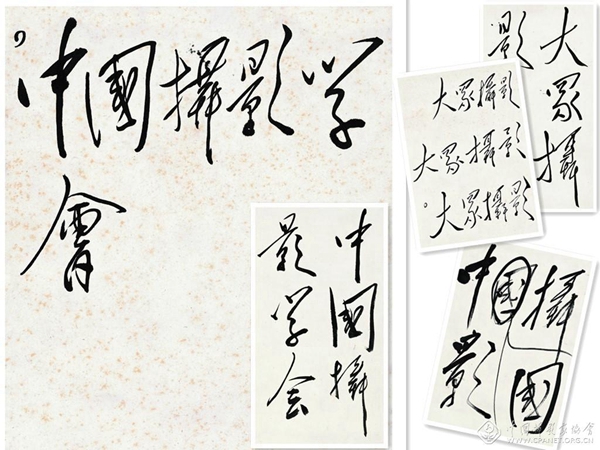 中國攝影学
會
中國攝
影学会
大眾攝
影
大眾攝影
大眾攝影
大眾攝影
中國攝
影國
中国摄影家协会
WWW.CPANET.ORG.CN